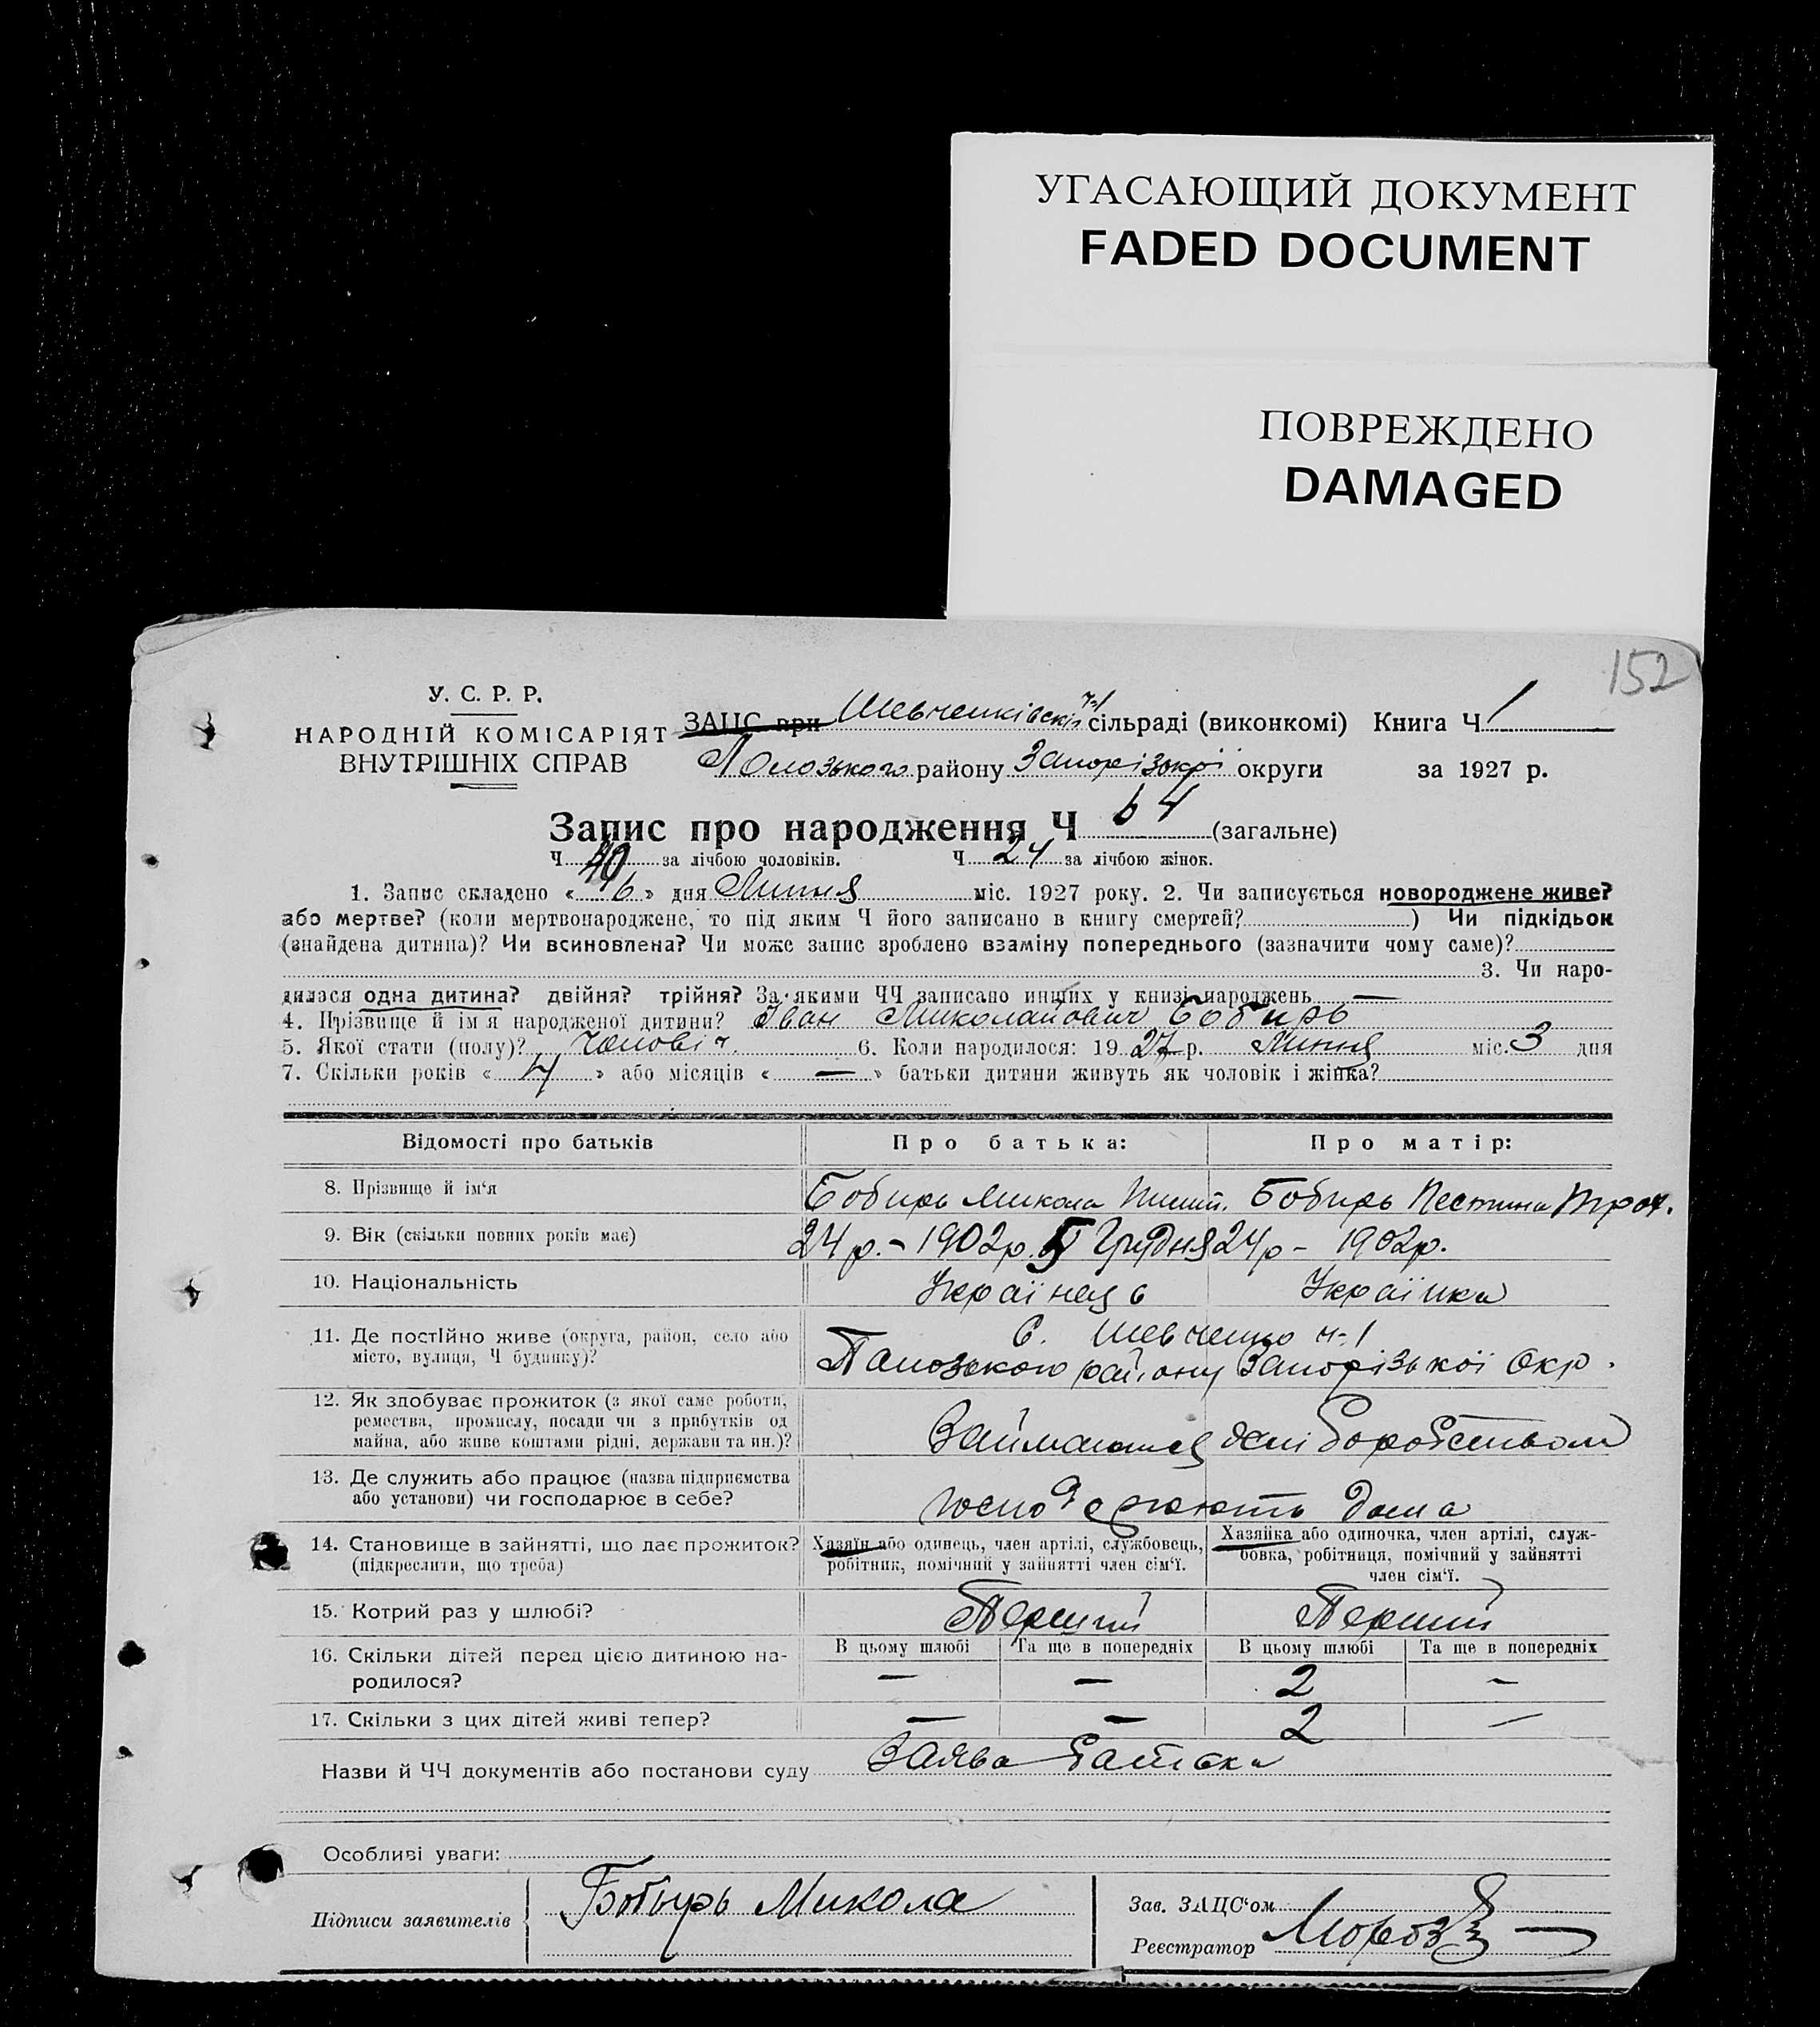 УГАСАЮЩИЙ ДОКУМЕНТ
FADED DOCUMENT
ПОВРЕЖДЕНО
DAMAGED
152
У. С. Р. Р.
НАРОДНІЙ КОМІСАРІЯТ
ВНУТРІШНІХ СПРАВ
ЗАЦС при Шевченківскій ч-1 сільраді (виконкомі) Книга Ч 1
Полозького району Запорізької округи за 1927 р.
Запис про народження Ч 64 (загальне)
Ч 40 за лічбою чоловіків. Ч 24 за лічбою жінок.
1. Запис складено « 6 » дня Липня міс. 1927 року. 2. Чи записується новороджене живе?
або мертве? (коли мертвонароджене, то під яким Ч його записано в книгу смертей? ) Чи підкідьок
(знайдена дитина)? Чи всиновлена? Чи може запис зроблено взаміну попереднього (зазначити чому саме)?
3. Чи наро-
дилася одна дитина? двійня? трійня? За якими ЧЧ записано инших у книзі народжень —
4. Прізвище й ім'я народженої дитини? Іван Миколайович Бобирь
5. Якої стати (полу)? Чоловіч. 6. Коли народилося: 19 27 р. Липня міс. 3 дня
7. Скільки років « 4 » або місяців « — » батьки дитини живуть як чоловік і жінка?
Відомості про батьків Про батька: Про матір:
8. Прізвище й ім'я Бобирь Микола Бобирь
9. Вік (скільки повних років має) 24 р. - 1902 р. 5 Грудня 24 р - 1902 р.
10. Національність Українець Українка
11. Де постійно живе (округа, район, село або
місто, вулиця, Ч будинку)?
С. Шевченко ч-1
Полозького району Запорізької Окр.
12. Як здобуває прожиток (з якої саме роботи,
ремества, промислу, посади чи з прибутків од
майна, або живе коштами рідні, держави та ин.)?
Займаються хліборобством
13. Де служить або працює (назва підприємства
або установи) чи господарює в себе?
господарюють дома
14. Становище в зайнятті, що дає прожиток?
(підкреслити, що треба)
Хазяїн або одинець, член артілі, службовець,
робітник, помічний у зайнятті член сім'ї.
Хазяйка або одиночка, член артілі, служ-
бовка, робітниця, помічний у зайнятті
член сім'ї.
15. Котрий раз у шлюбі? Перший Перший
В цьому шлюбі Та ще в попередніх В цьому шлюбі Та ще в попередніх
16. Скільки дітей перед цією дитиною на-
родилося? — — 2 —
17. Скільки з цих дітей живі тепер? — — 2 —
Назви й ЧЧ документів або постанови суду Заява батька
Особливі уваги:
Підписи заявителів Бобырь Микола
Зав. ЗАЦС'ом
Реєстратор Мороз